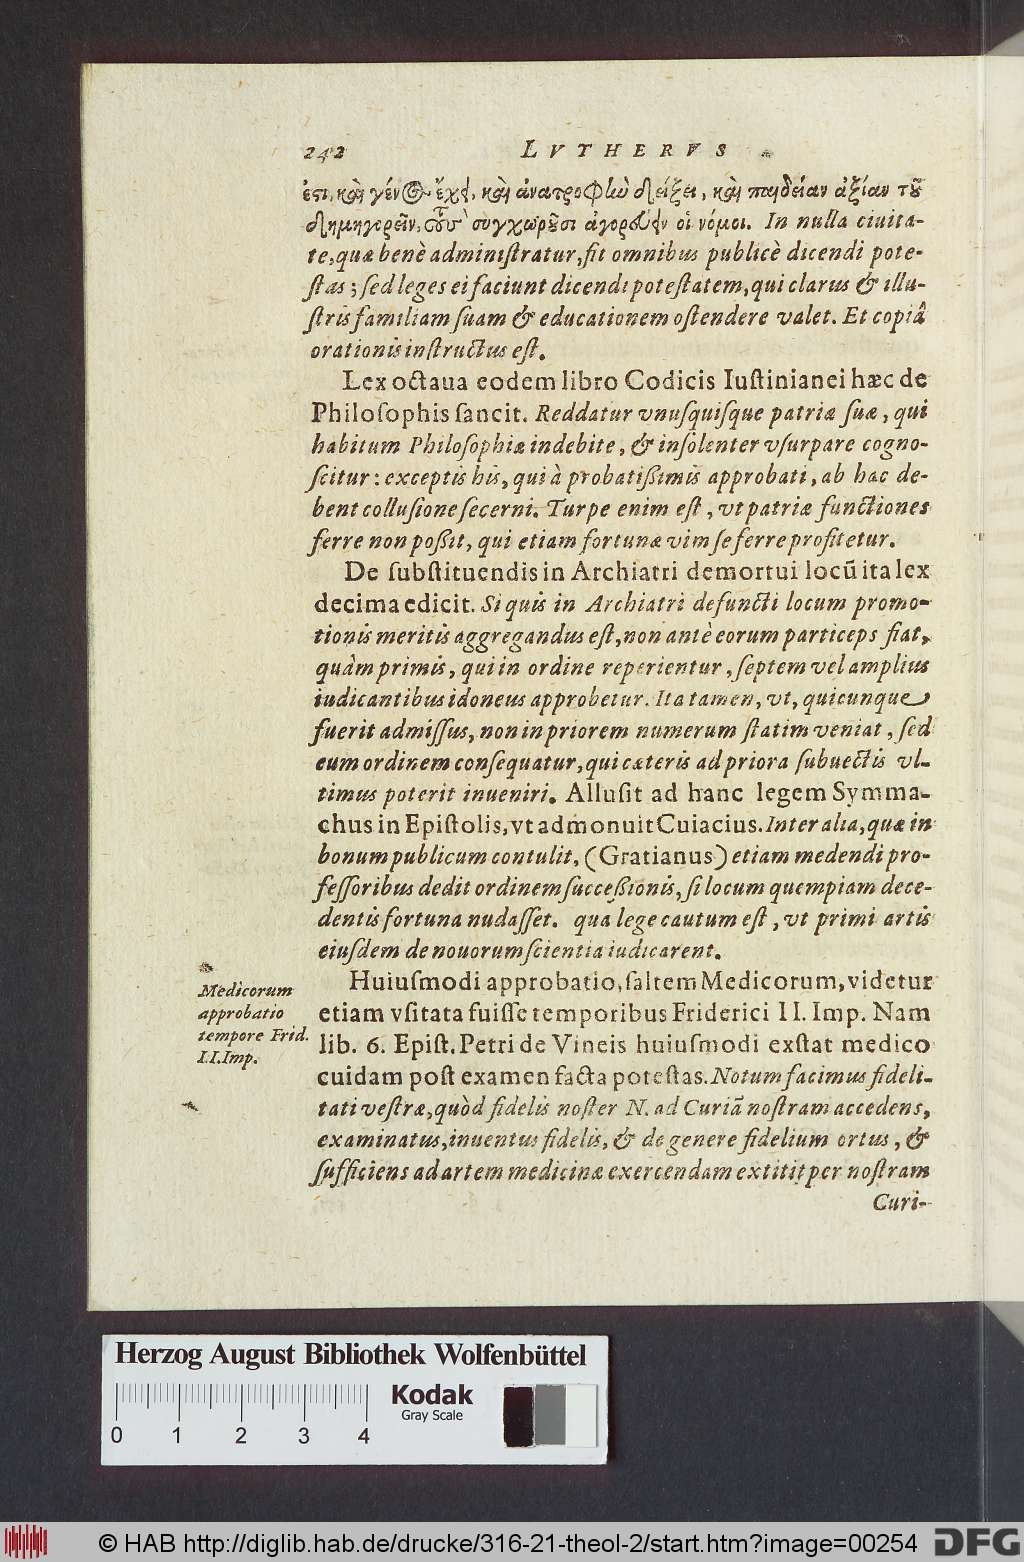 242 LVTHERVS
ἐστι, καὶ γένος ἔχῃ, καὶ ἀνατροφὴν δείξει, καὶ παιδείαν ἀξίαν τοῦ
δημηγορεῖν, συγχωροῦσι ἀγορεύειν οἱ νόμοι. In nulla ciuita-
te, quæ benè administratur, fit omnibus publicè dicendi pote-
stas; sed leges ei faciunt dicendi potestatem, qui clarus & illu-
stris familiam suam & educationem ostendere valet. Et copiâ
orationis instructus est.
Lex octaua eodem libro Codicis Iustinianei hæc de
Philosophis sancit. Reddatur vnusquisque patriæ suæ, qui
habitum Philosophiæ indebite, & insolenter vsurpare cogno-
scitur: exceptis his, qui à probatißimis approbati, ab hac de-
bent collusione secerni. Turpe enim est, vt patriæ functiones
ferre non poßit, qui etiam fortunæ vim se ferre profitetur.
De substituendis in Archiatri demortui locū ita lex
decima edicit. Si quis in Archiatri defuncti locum promo-
tionis meritis aggregandus est, non antè eorum particeps fiat,
quàm primis, qui in ordine reperientur, septem vel amplius
iudicantibus idoneus approbetur. Ita tamen, vt, quicunque
fuerit admissus, non in priorem numerum statim veniat, sed
eum ordinem consequatur, qui cæteris ad priora subuectis vl-
timus poterit inueniri. Allusit ad hanc legem Symma-
chus in Epistolis, vt admonuit Cuiacius. Inter alia, quæ in
bonum publicum contulit, (Gratianus) etiam medendi pro-
fessoribus dedit ordinem succeßionis, si locum quempiam dece-
dentis fortuna nudasset. qua lege cautum est, vt primi artis
eiusdem de nouorum scientia iudicarent.
Huiusmodi approbatio, saltem Medicorum, videtur
etiam vsitata fuisse temporibus Friderici II. Imp. Nam
lib. 6. Epist. Petri de Vineis huiusmodi exstat medico
cuidam post examen facta potestas. Notum facimus fideli-
tati vestræ, quòd fidelis noster N. ad Curiā nostram accedens,
examinatus, inuentus fidelis, & de genere fidelium ortus, &
sufficiens ad artem medicinæ exercendam extitit per nostram
Curi-
Medicorum
approbatio
tempore Frid.
I.I. Imp.
Herzog August Bibliothek Wolfenbüttel
Kodak
Gray Scale
0 1 2 3 4
© HAB http://diglib.hab.de/drucke/316-21-theol-2/start.htm?image=00254
DFG